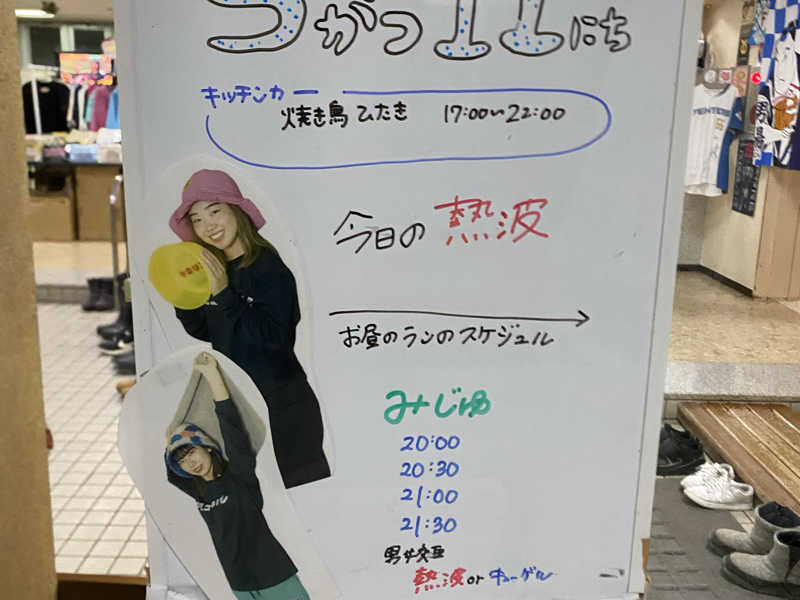 5がつ11にち
キッチンカー
焼き鳥 ひたき 17:00~22:00
今日の 熱波
お昼のランのスケジュール
みじゅ
20:00
20:30
21:00
21:30
男女交互
熱波 or キューゲル